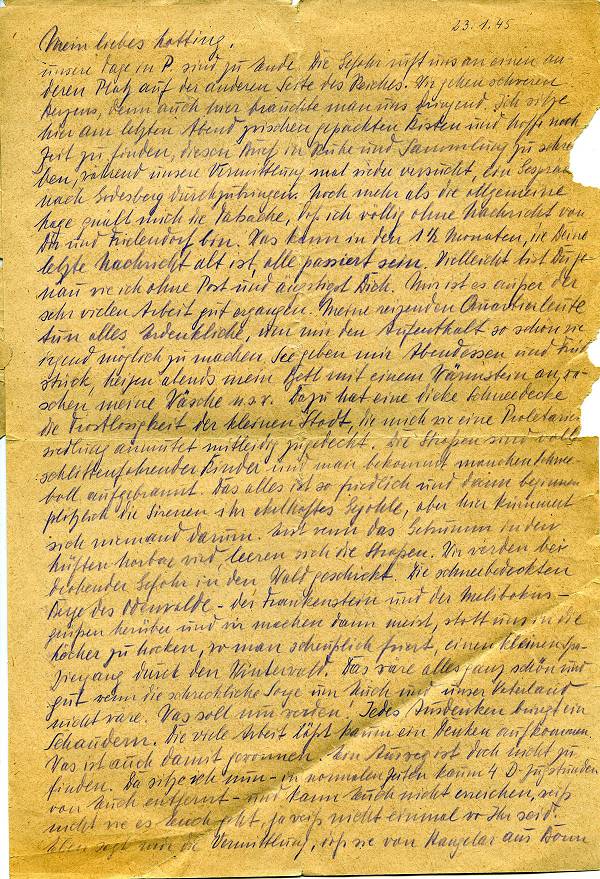 23.1.45
Mein liebes
unsere Tage in P. sind zu Ende. Die Gefahr ruft uns an einen an
deren Platz auf der anderen Seite des Reiches. Wir gehen schweren
Herzens, denn auch hier brauchte man uns dringend. Ich sitze
hier am letzten Abend zwischen gepackten Kisten und hoffe noch
Zeit zu finden, diesen Brief in Ruhe und Sammlung zu schrei
ben, während unsere Vermittlung mal wieder versucht, ein Gespräch
nach Godesberg durchzubringen. Noch mehr als die allgemeine
Lage quält mich die Tatsache, daß ich völlig ohne Nachricht von
Dir und bin. Was kann in den 1½ Monaten, die Deine
letzte Nachricht alt ist, alle passiert sein. Vielleicht bist Du ge
nau wie ich ohne Post und ängstigst Dich. Mir ist es außer der
sehr vielen Arbeit gut ergangen. Meine reizenden Quartierleute
tun alles Erdenkliche, um mir den Aufenthalt so schön wie
irgend möglich zu machen. Sie geben mir Abendessen und Früh
stück, heizen abends mein Bett mit einem Wärmstein an, wa
schen meine Wäsche u.s.w. Dazu hat eine dicke Schneedecke
die Trostlosigkeit der kleinen Stadt, die mich wie eine Proletarier
siedlung anmutet mitleidig zugedeckt. Die Straßen sind voll
schlittenfahrender Kinder und man bekommt manchen Schnee
ball aufgebrannt. Das alles ist so friedlich und dann beginnen
plötzlich die Sirenen ihr ekelhaftes Gejohle, aber hier kümmert
sich niemand darum. Erst wenn das Gebrumm in den
Lüften hörbar wird, leeren sich die Straßen. Wir werden bei
drohender Gefahr in den Wald geschickt. Die schneebedeckten
Berge des Odenwalds - der Frankenstein und der Melibokus -
grüßen herüber und wir machen dann meist, statt uns in die
Löcher zu hocken, wo man scheußlich friert, einen kleinen Spa
ziergang durch den Winterwald. Das wäre alles ganz schön und
gut wenn die schreckliche Sorge um Euch und unser Vaterland
nicht wäre. Was soll nun werden! Jedes Ausdenken bringt ein
Schaudern. Die viele Arbeit läßt kaum ein Denken aufkommen.
Was ist auch damit gewonnen. Ein Ausweg ist doch nicht zu
finden. Da sitze ich nun - in normalen Zeiten kaum 4 D-Zugstunden
von Euch entfernt - und kann Euch nicht erreichen, weiß
nicht wie es Euch geht, ja weiß nicht einmal wo Ihr seid.
Eben sagt mir die Vermittlung, daß sie von Hangelar aus Bonn